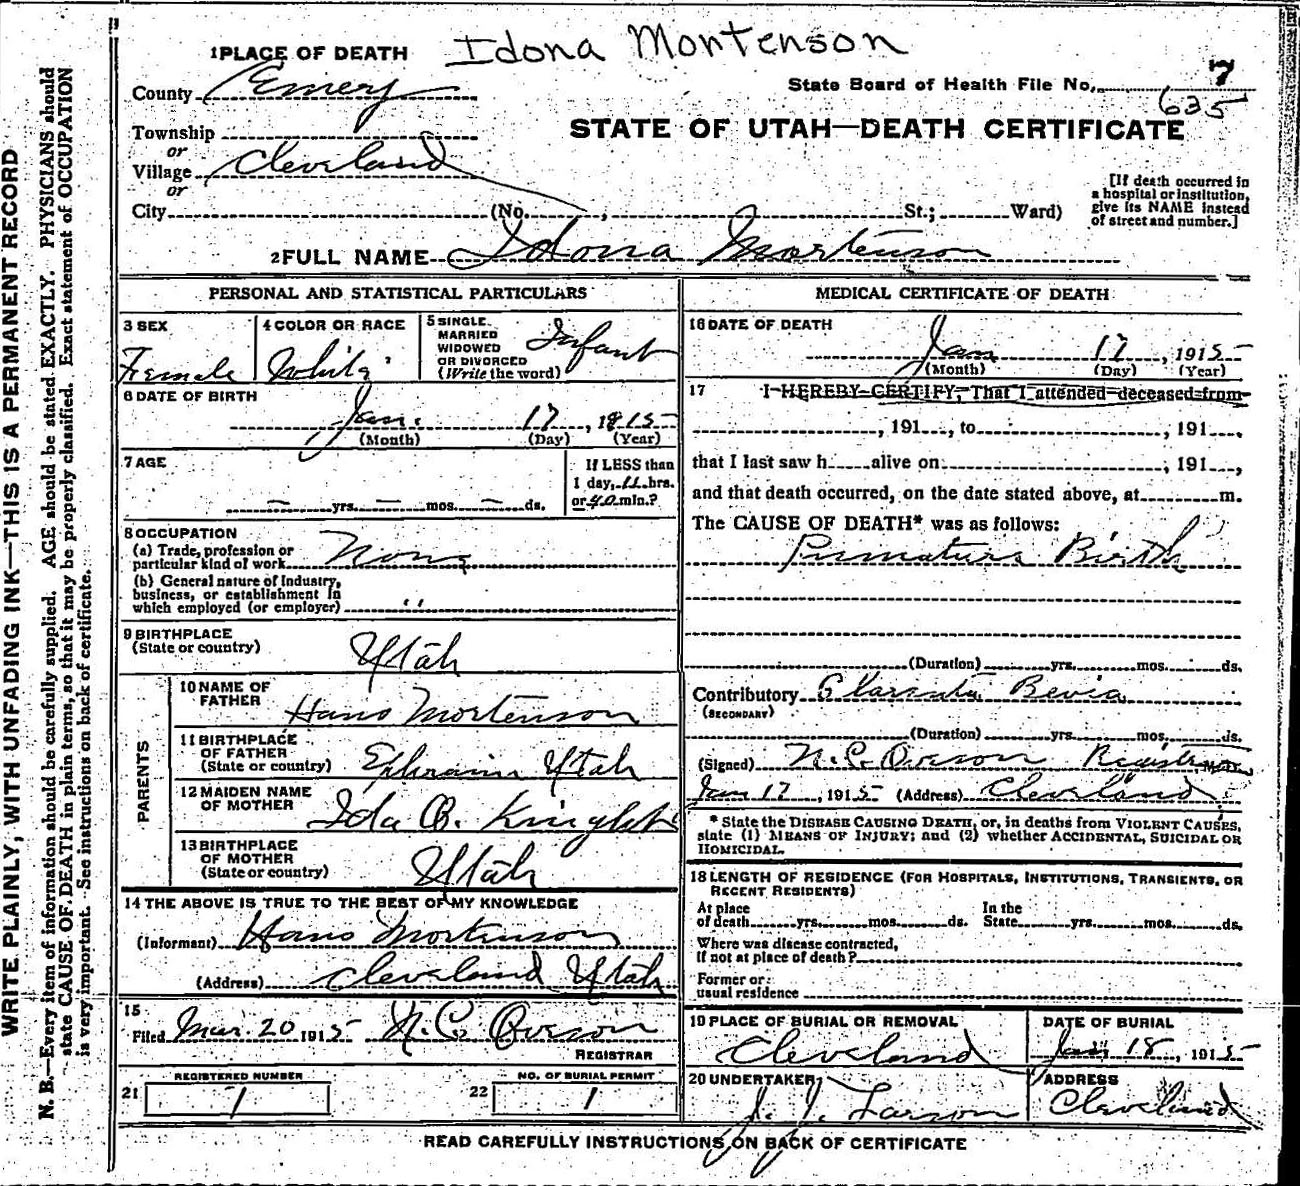 Idona Mortenson
1 PLACE OF DEATH
State Board of Health File No. 7
635
County Emery
STATE OF UTAH—DEATH CERTIFICATE
Township
or
Village Cleveland
or
City (No. , St.; Ward)
[If death occurred in
a hospital or institution,
give its NAME instead
of street and number.]
2 FULL NAME Idona Mortenson
PERSONAL AND STATISTICAL PARTICULARS
3 SEX
Female
4 COLOR OR RACE
White
5 SINGLE
MARRIED
WIDOWED
OR DIVORCED
(Write the word)
Infant
6 DATE OF BIRTH
Jan. 17, 1915
(Month) (Day) (Year)
7 AGE
— yrs. — mos. — ds.
If LESS than
1 day, 11 hrs.
or 40 min.?
8 OCCUPATION
(a) Trade, profession or
particular kind of work None
(b) General nature of Industry,
business, or establishment in
which employed (or employer) "
9 BIRTHPLACE
(State or country)
Utah
PARENTS
10 NAME OF
FATHER
Hans Mortenson
11 BIRTHPLACE
OF FATHER
(State or country) Ephraim Utah
12 MAIDEN NAME
OF MOTHER
Ida B. Knight
13 BIRTHPLACE
OF MOTHER
(State or country) Utah
14 THE ABOVE IS TRUE TO THE BEST OF MY KNOWLEDGE
(Informant) Hans Mortenson
(Address) Cleveland Utah
15
Filed Mar. 20 1915 N. C. Oveson
REGISTRAR
21 REGISTERED NUMBER
1
22 NO. OF BURIAL PERMIT
1
MEDICAL CERTIFICATE OF DEATH
16 DATE OF DEATH
Jan 17, 1915
(Month) (Day) (Year)
17 I HEREBY CERTIFY, That I attended deceased from
, 191 , to , 191
that I last saw h alive on , 191 ,
and that death occurred, on the date stated above, at m.
The CAUSE OF DEATH* was as follows:
Premature Birth
(Duration) yrs. mos. ds.
Contributory
(SECONDARY)
(Duration) yrs. mos. ds.
(Signed) N. C. Oveson Registrar
Jan 17, 1915 (Address) Cleveland
* State the DISEASE CAUSING DEATH, or, in deaths from VIOLENT CAUSES,
state (1) MEANS OF INJURY; and (2) whether ACCIDENTAL, SUICIDAL OR
HOMICIDAL.
18 LENGTH OF RESIDENCE (FOR HOSPITALS, INSTITUTIONS, TRANSIENTS, OR
RECENT RESIDENTS)
At place In the
of death yrs. mos. ds. State yrs. mos. ds.
Where was disease contracted,
if not at place of death?
Former or
usual residence
19 PLACE OF BURIAL OR REMOVAL
Cleveland
DATE OF BURIAL
Jan 18, 1915
20 UNDERTAKER
J. J. Larson
ADDRESS
Cleveland
READ CAREFULLY INSTRUCTIONS ON BACK OF CERTIFICATE
WRITE PLAINLY, WITH UNFADING INK—THIS IS A PERMANENT RECORD
N. B.—Every item of information should be carefully supplied. AGE should be stated EXACTLY. PHYSICIANS should
state CAUSE OF DEATH in plain terms, so that it may be properly classified. Exact statement of OCCUPATION
is very important. See instructions on back of certificate.